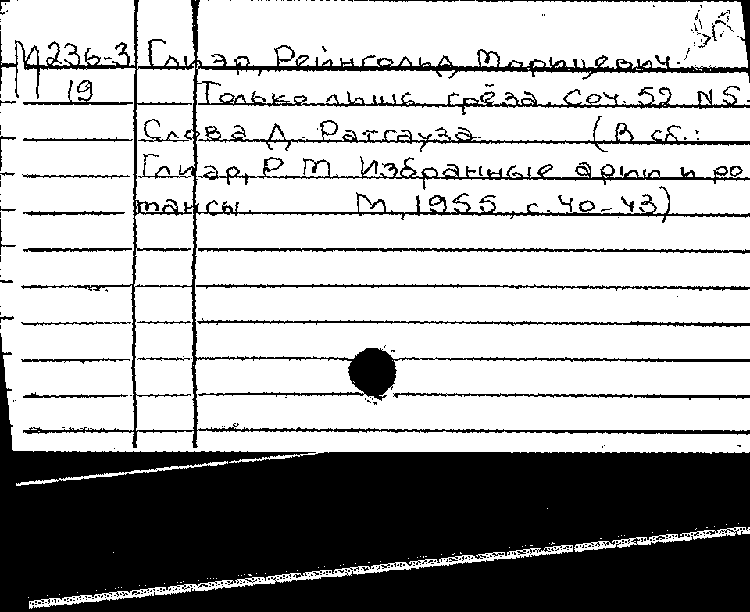 М236-3 Глиэр, Рейнгольд Морицевич.
19 Только лишь грёза. Соч. 52 N5.
Слова Д. Ратгауза (В сб.:
Глиэр, Р. М. Избранные арии и ро
мансы. М., 1955, с. 40-43)